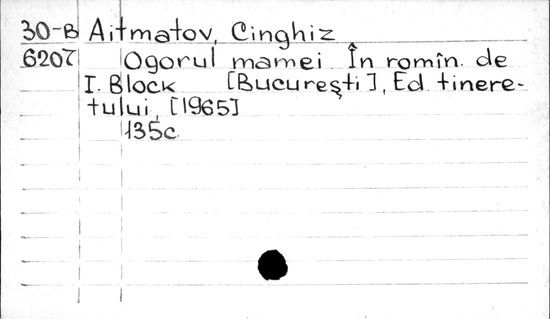 30-B Aitmatov, Cinghiz
6207 Ogorul mamei. În romîn. de
I. Block [Bucureşti], Ed. tinere-
tului, [1965]
135c.